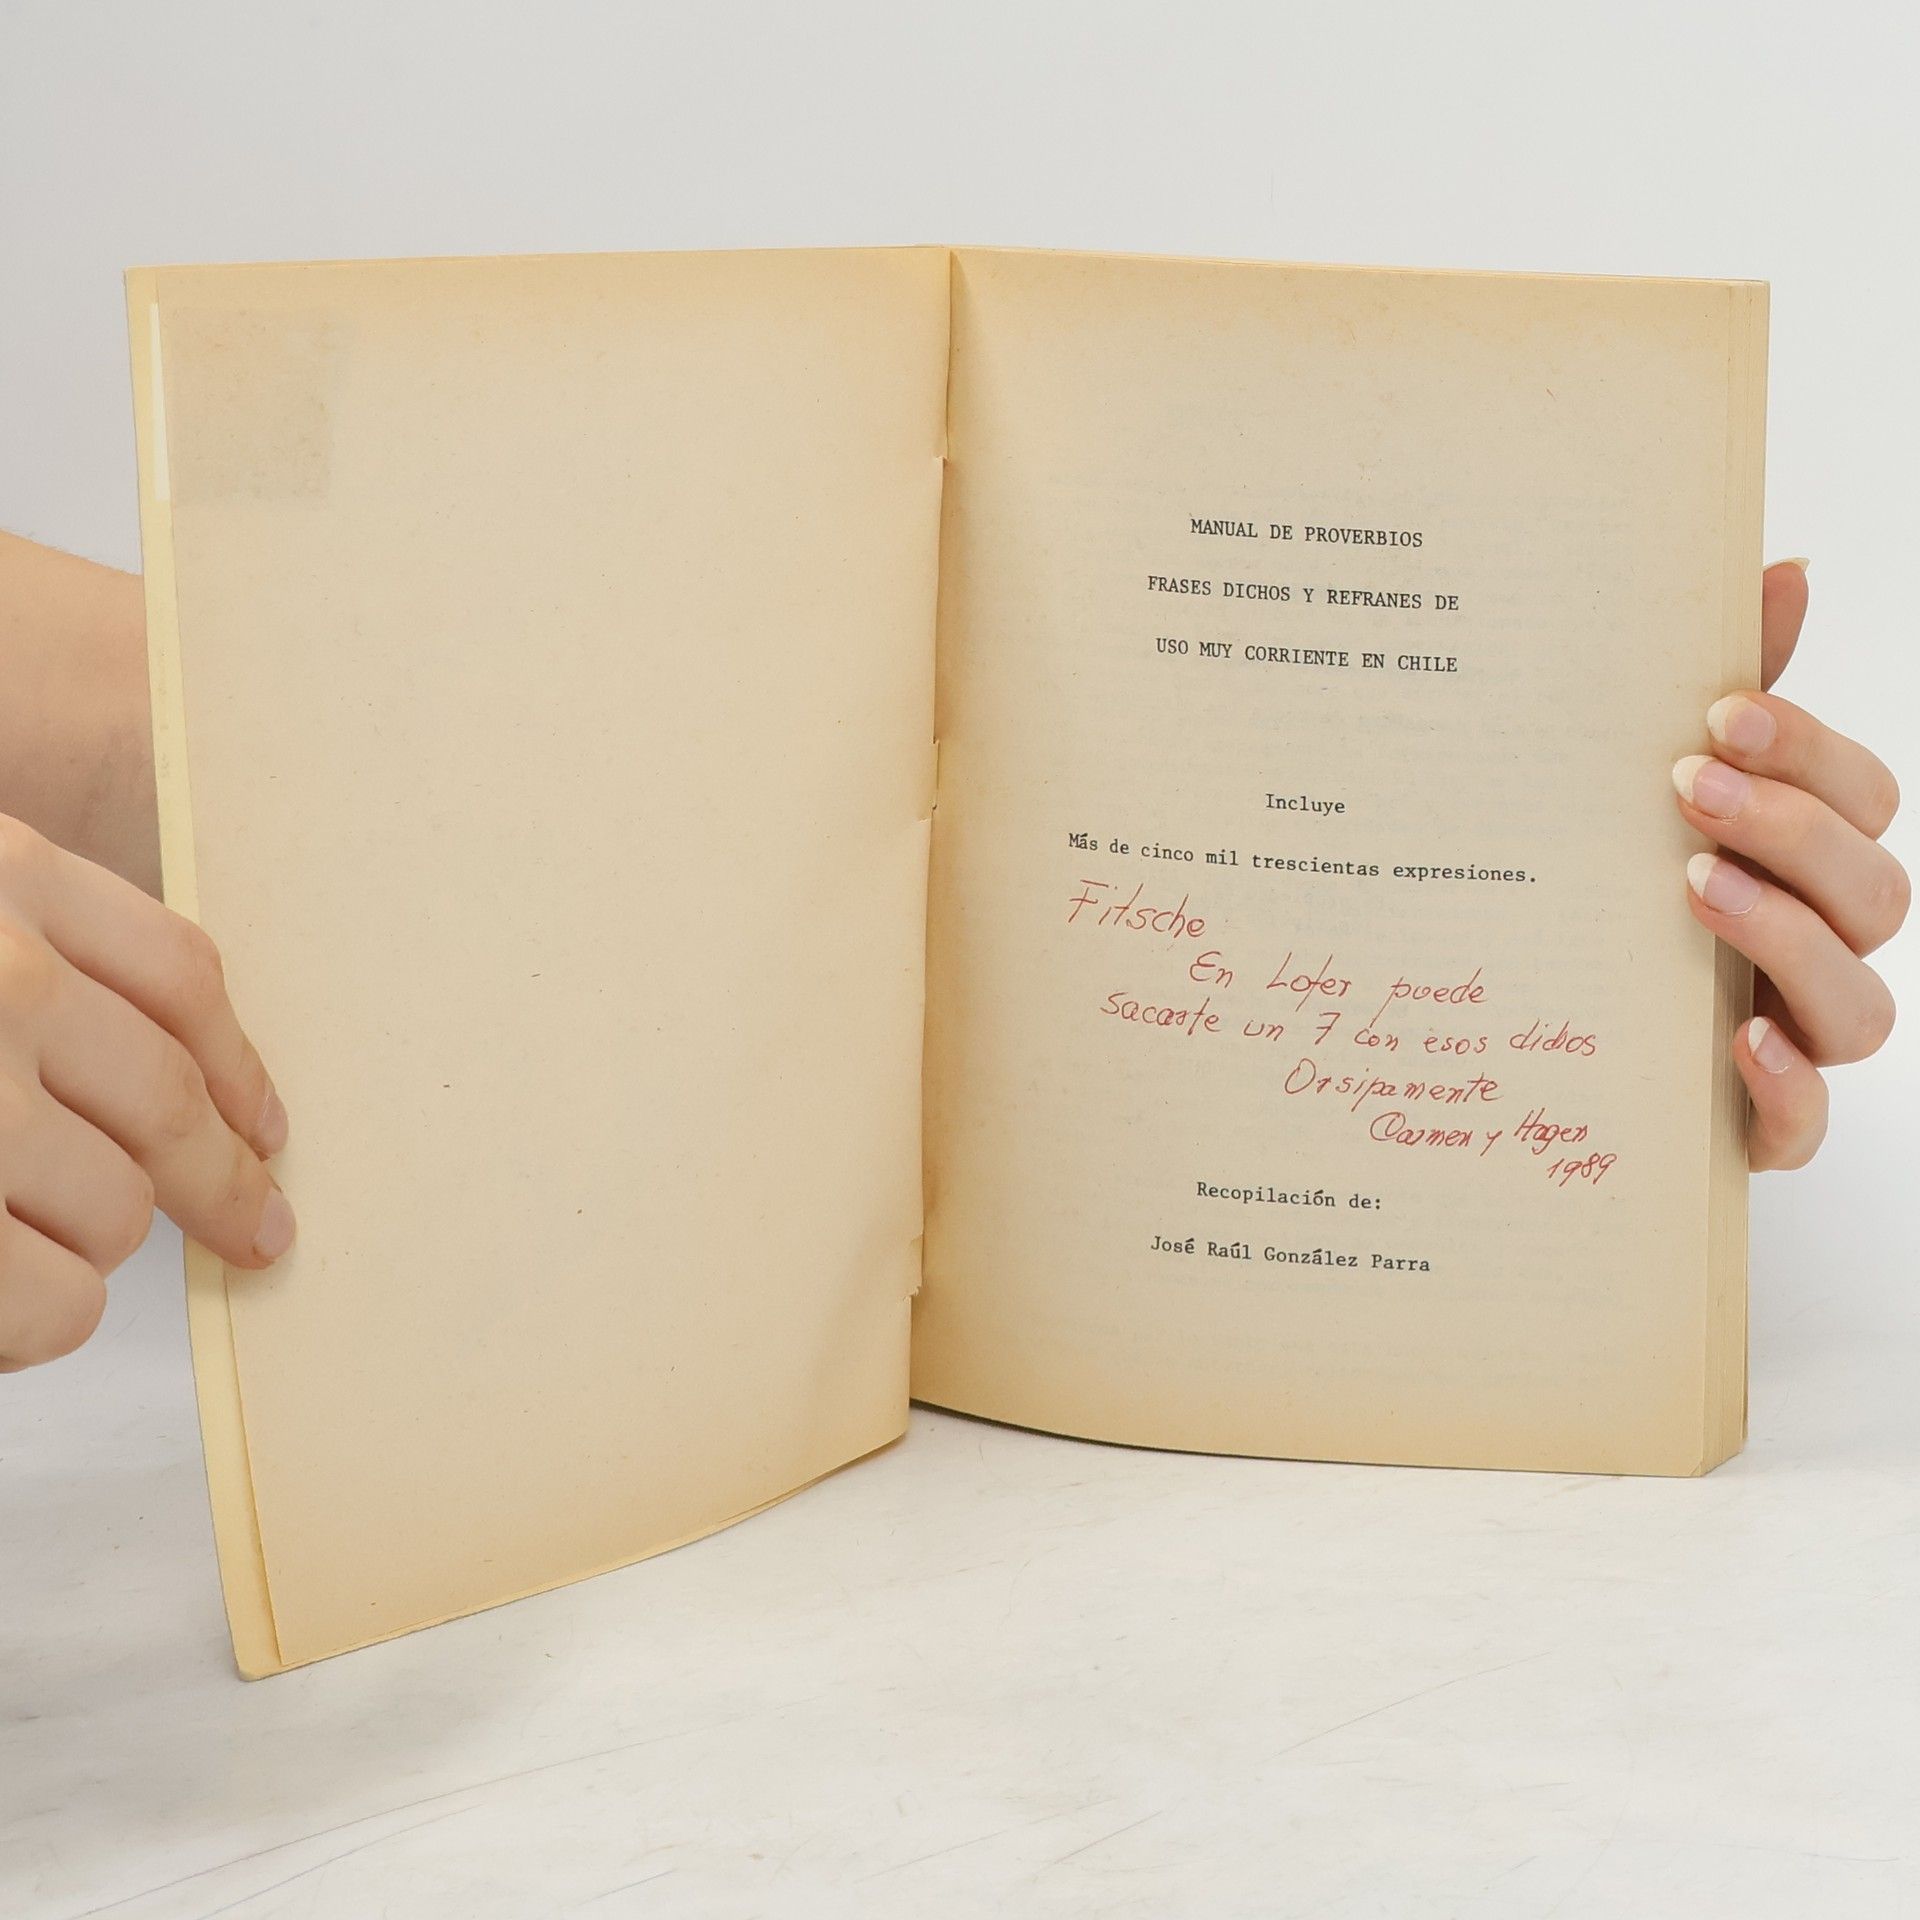 MANUAL DE PROVERBIOS
FRASES DICHOS Y REFRANES DE
USO MUY CORRIENTE EN CHILE
Incluye
Más de cinco mil trescientas expresiones.
Fitsche
En Lofer puede
sacarte un 7 con esos dichos
Orsipamente
Carmen y Hagen
1989
Recopilación de:
José Raúl González Parra